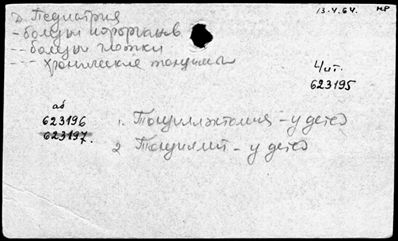 Д. Педиатрия 13.4.64. МР
- болезни лорорганов
-- болезни глотки
--- хронические тонзиллиты
Чит.
623195
аб
623196 1. Тонзиллэктомия - у детей
623197. 2 Тонзиллит - у детей